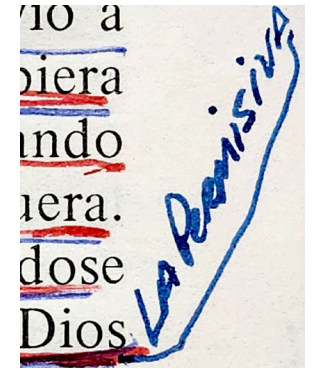 vió a
biera
ando
uera.
dose
Dios
La Permisiva